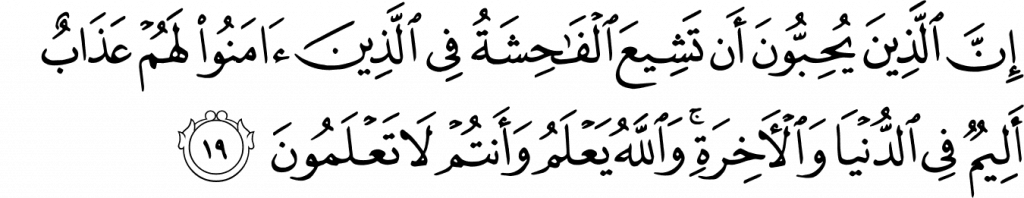 إِنَّ ٱلَّذِينَ يُحِبُّونَ أَن تَشِيعَ ٱلْفَـٰحِشَةُ فِى ٱلَّذِينَ ءَامَنُوا۟ لَهُمْ عَذَابٌ
أَلِيمٌ فِى ٱلدُّنْيَا وَٱلْـَٔاخِرَةِ ۚ وَٱللَّهُ يَعْلَمُ وَأَنتُمْ لَا تَعْلَمُونَ ١٩